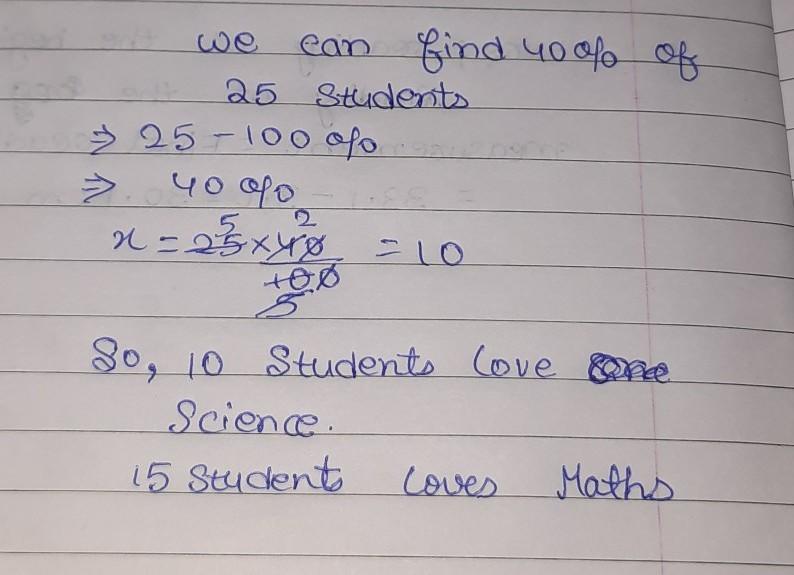 we can find 40% of
25 Students
⇒ 25 - 100%
⇒ 40%
x = 25 × 40/100 = 10
5 2
5
So, 10 Students Love
Science.
15 Student Loves Maths